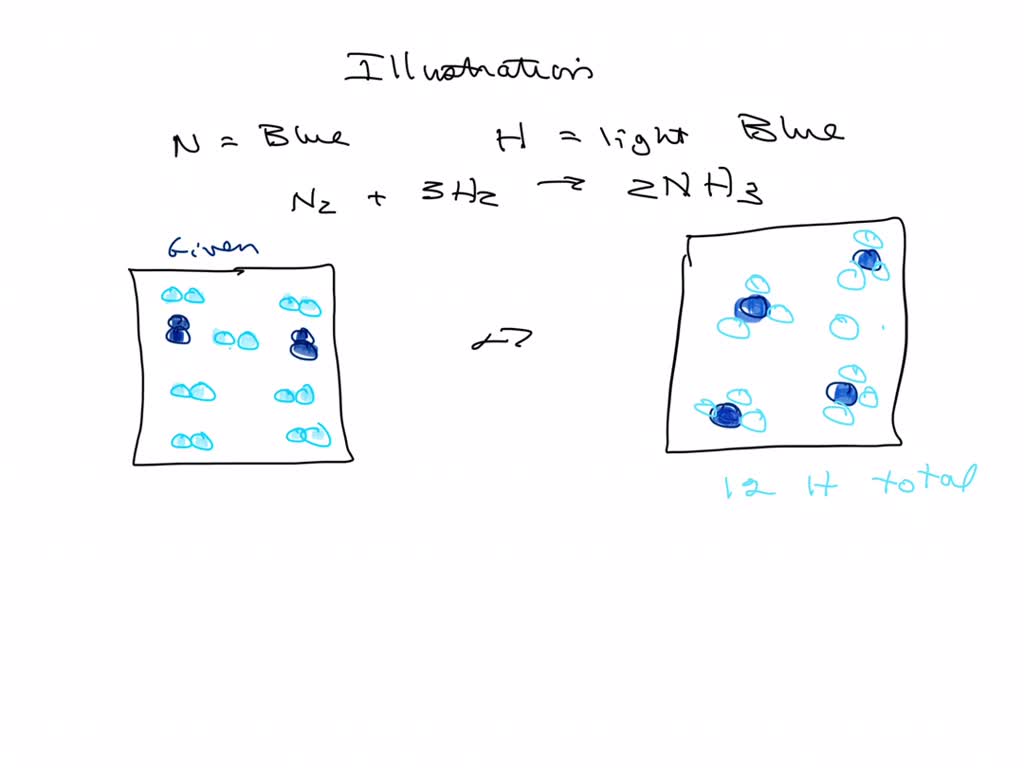 Illustration
N = Blue H = light Blue
N2 + 3H2 → 2NH3
Given
12 H total